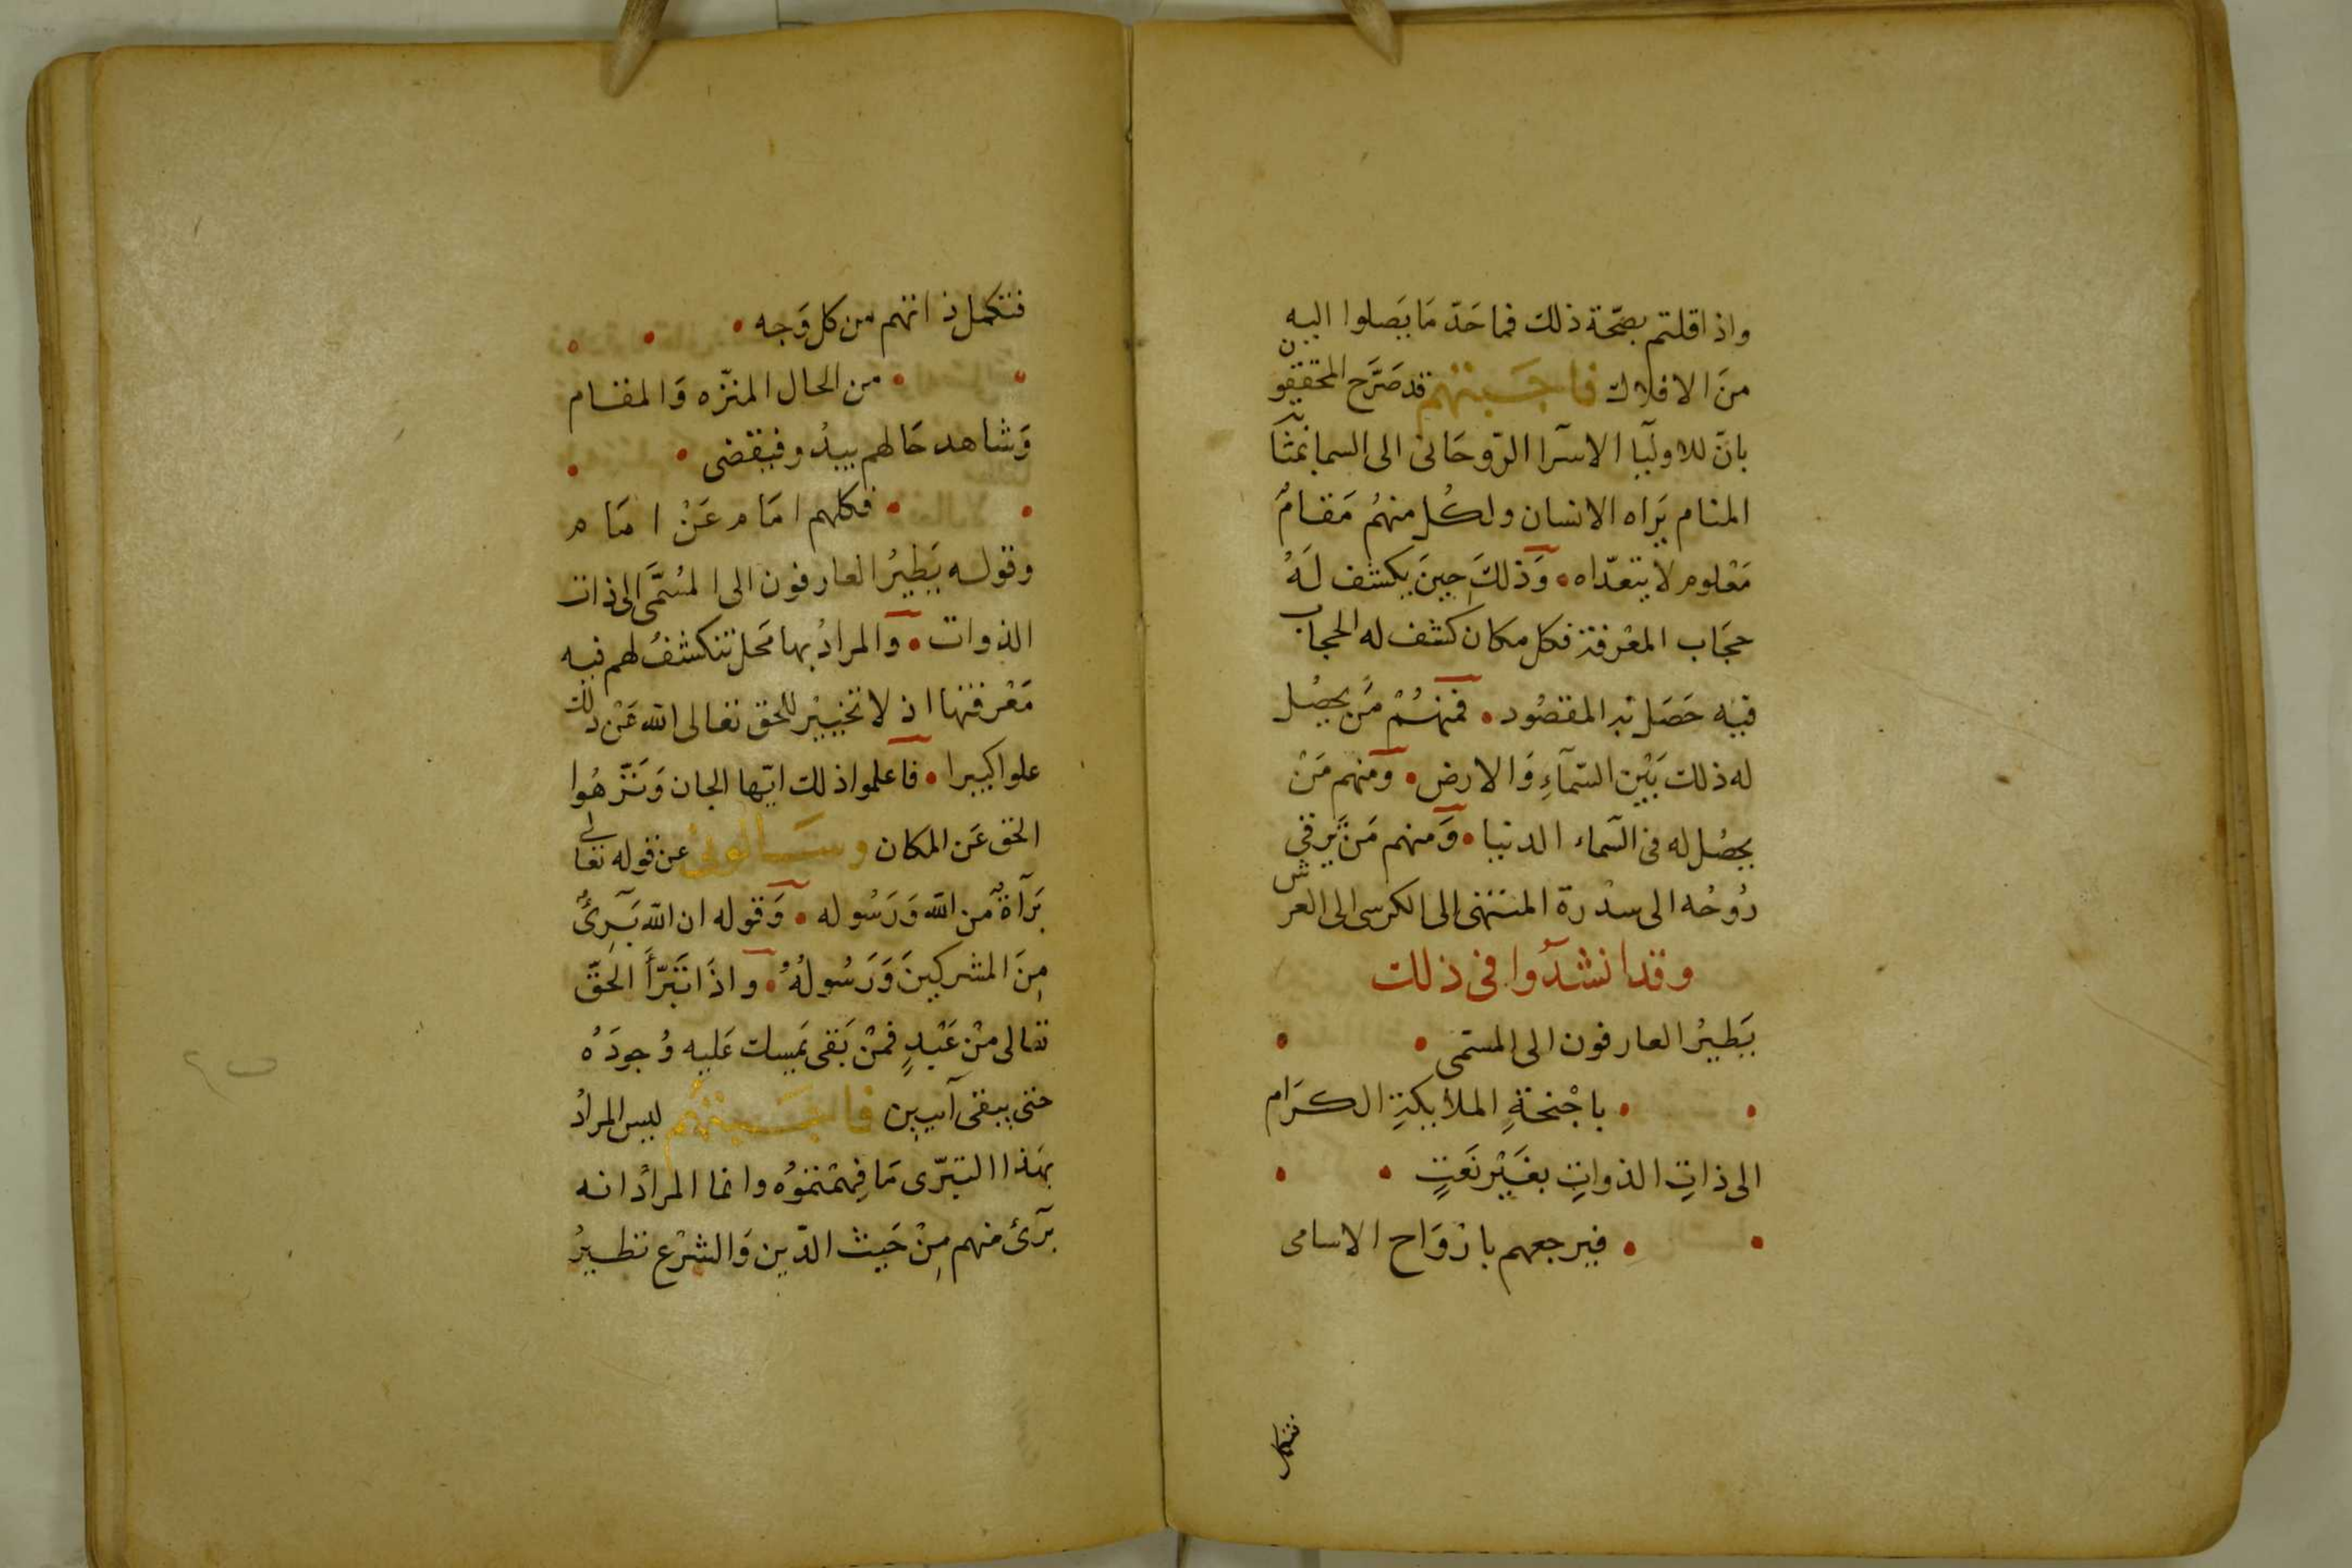 واذا قلتم بصّحة ذلك فما حَدّ مَا يَصلوا اليه
منَ الافلاك فاجَبتهم قد صَرَّح المحققون
بانّ للاوليآ الاسرآ الرّوحَانى الى السما بمثابة
المنام يَراه الانسان ولكُل منهُم مَقامٌ
مَعْلوم لا يتعدّاه • وَذلكَ حِينَ يكشف لَهُ
حجَاب المعْرفة فكل مكان كشف له الحجاب
فيه حَصَل به المقصُود • فمنهُمْ مَن يحصُل
له ذلك بَيْن السّمآءِ وَالارض • وَمنهم مَنْ
يحصُل له فى السّماء الدنيا • وَمنهم مَنْ يَرقى
رُوحُه الى سدْرة المنتهى الى الكرسى الى العرش
وقد انشدُوا فى ذلك
يَطيرُ العارفون الى المسَمى •
• باجْنحَةِ الملائكةِ الكرَام
الى ذاتِ الذواتِ بغَيْر نَعتٍ •
• فيرجعهم بارْوَاح الاسامى
فتكمل
فتكمل ذاتهم من كل وَجه •
• من الحال المنزّه وَالمقام
وَشاهد حَالهم يبدُو فيقضى •
• فكلهم امَام عَنْ امَام
وقوله يَطيرُ العارفون الى المسُمَّى الى ذات
الذوات • وَالمرادُ بها مَحل تنكشفُ لهم فيه
مَعْرفتها اذ لا تحْييْز للحق تعالى الله عَنْ ذلك
علوا كبيرا • فاعلموا ذلك ايّها الجان وَنَزّهُوا
الحق عَن المكان وسَالونى عن قوله تعالى
بَرآةٌ من الله وَرَسُوله • وَقوله ان الله بَرِئٌ
مِنَ المشركينَ وَرَسُولُهُ • واذَا تَبَرّأَ الحَقّ
تعالى منْ عَبْدٍ فمنْ بَقى يَمسك عَليه وُجودَهُ
حتى يبقى آيبين فاجَبتهُم ليس المرادُ
بهَذا التبَرّى مَا فهمْتمُوُه وانما المرادُ انه
برَئ منهم مِنْ حَيث الدّين وَالشرْع نظيرُ